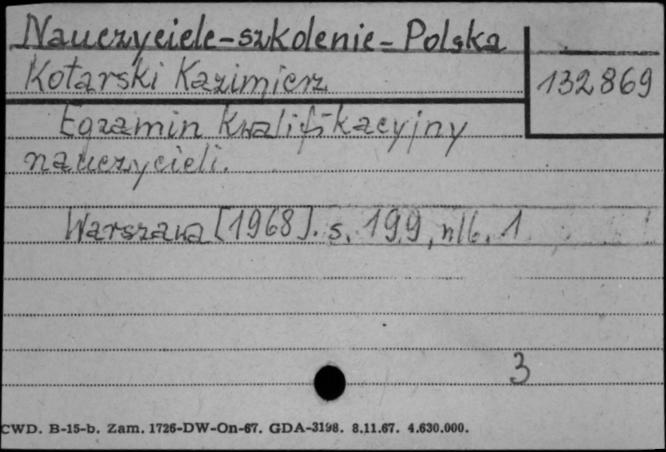 Nauczyciele-szkolenie-Polska
Kotarski Kazimierz
132869
Egzamin kwalifikacyjny
nauczycieli.
Warszawa [1968]. s. 199, nlb. 1
3
CWD. B-15-b. Zam. 1726-DW-On-67. GDA-3198. 8.11.67. 4.630.000.